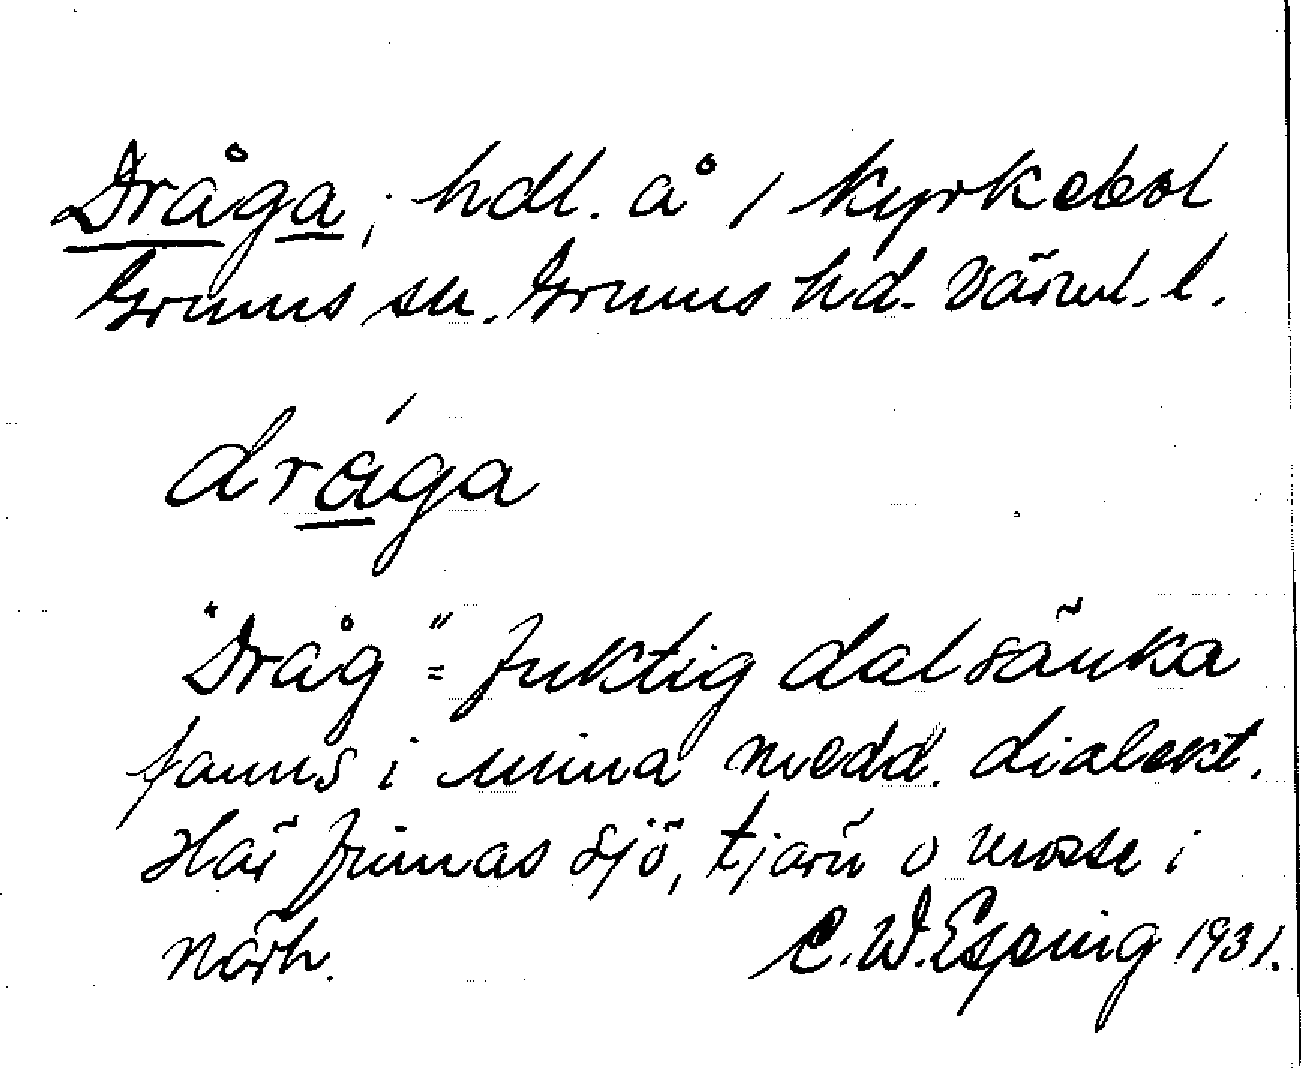 Dråga, hdl. å i Kyrkebol
Grums sn. Grums hd. Värml. l.
dråga
"Dråg" = fuktig dalsänka
fanns i mina medd. dialekt.
Här finnas sjö, tjärn o mosse i
närh. C. W. Esping 1931.